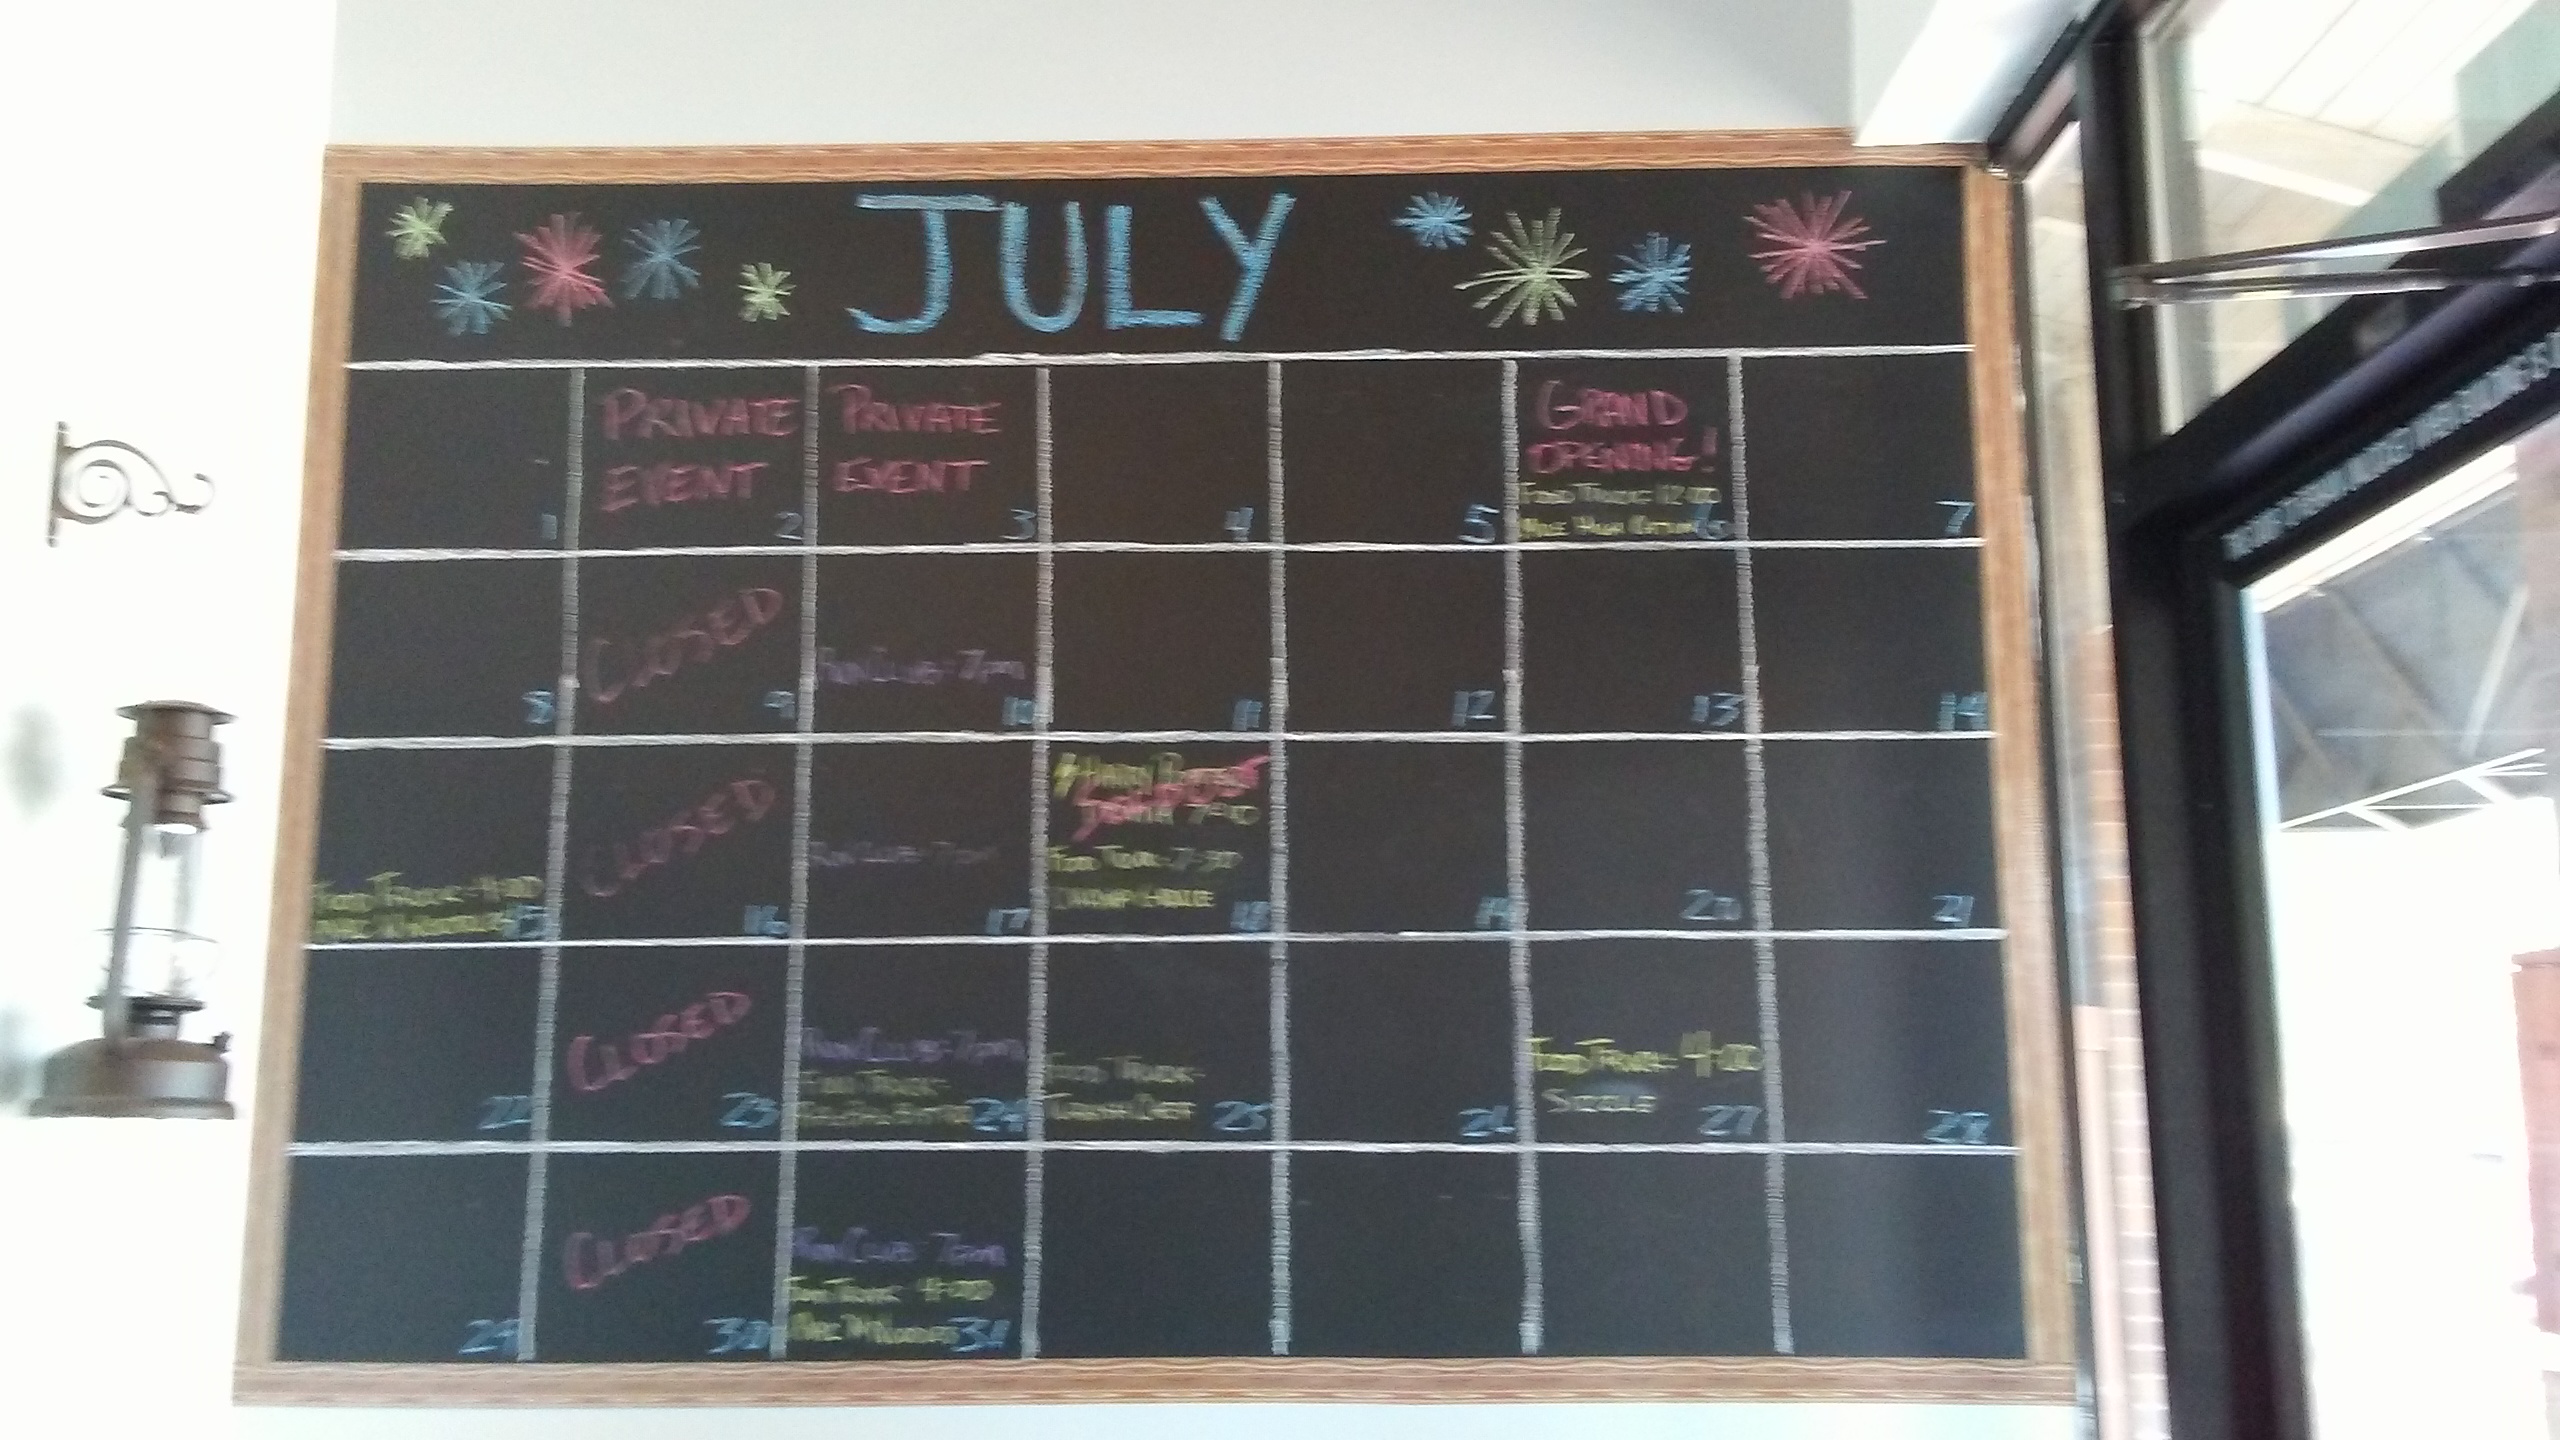 JULY
PRIVATE
EVENT
PRIVATE
EVENT
GRAND
OPENING!
FOOD TRUCK- 12:00
MILE HIGH
1
2
3
4
5
6
7
CLOSED
RUN CLUB- 7pm
8
9
10
11
12
13
14
HARRY POTTER
TRIVIA 7:00
CLOSED
RUN CLUB- 7pm
FOOD TRUCK- 7:30
FOOD TRUCK- 4:00
15
16
17
18
19
20
21
CLOSED
RUN CLUB- 7pm
FOOD TRUCK-
FOOD TRUCK-
FOOD TRUCK- 4:00
SIZZLE
22
23
24
25
26
27
28
CLOSED
RUN CLUB- 7pm
FOOD TRUCK- 4:00
29
30
31